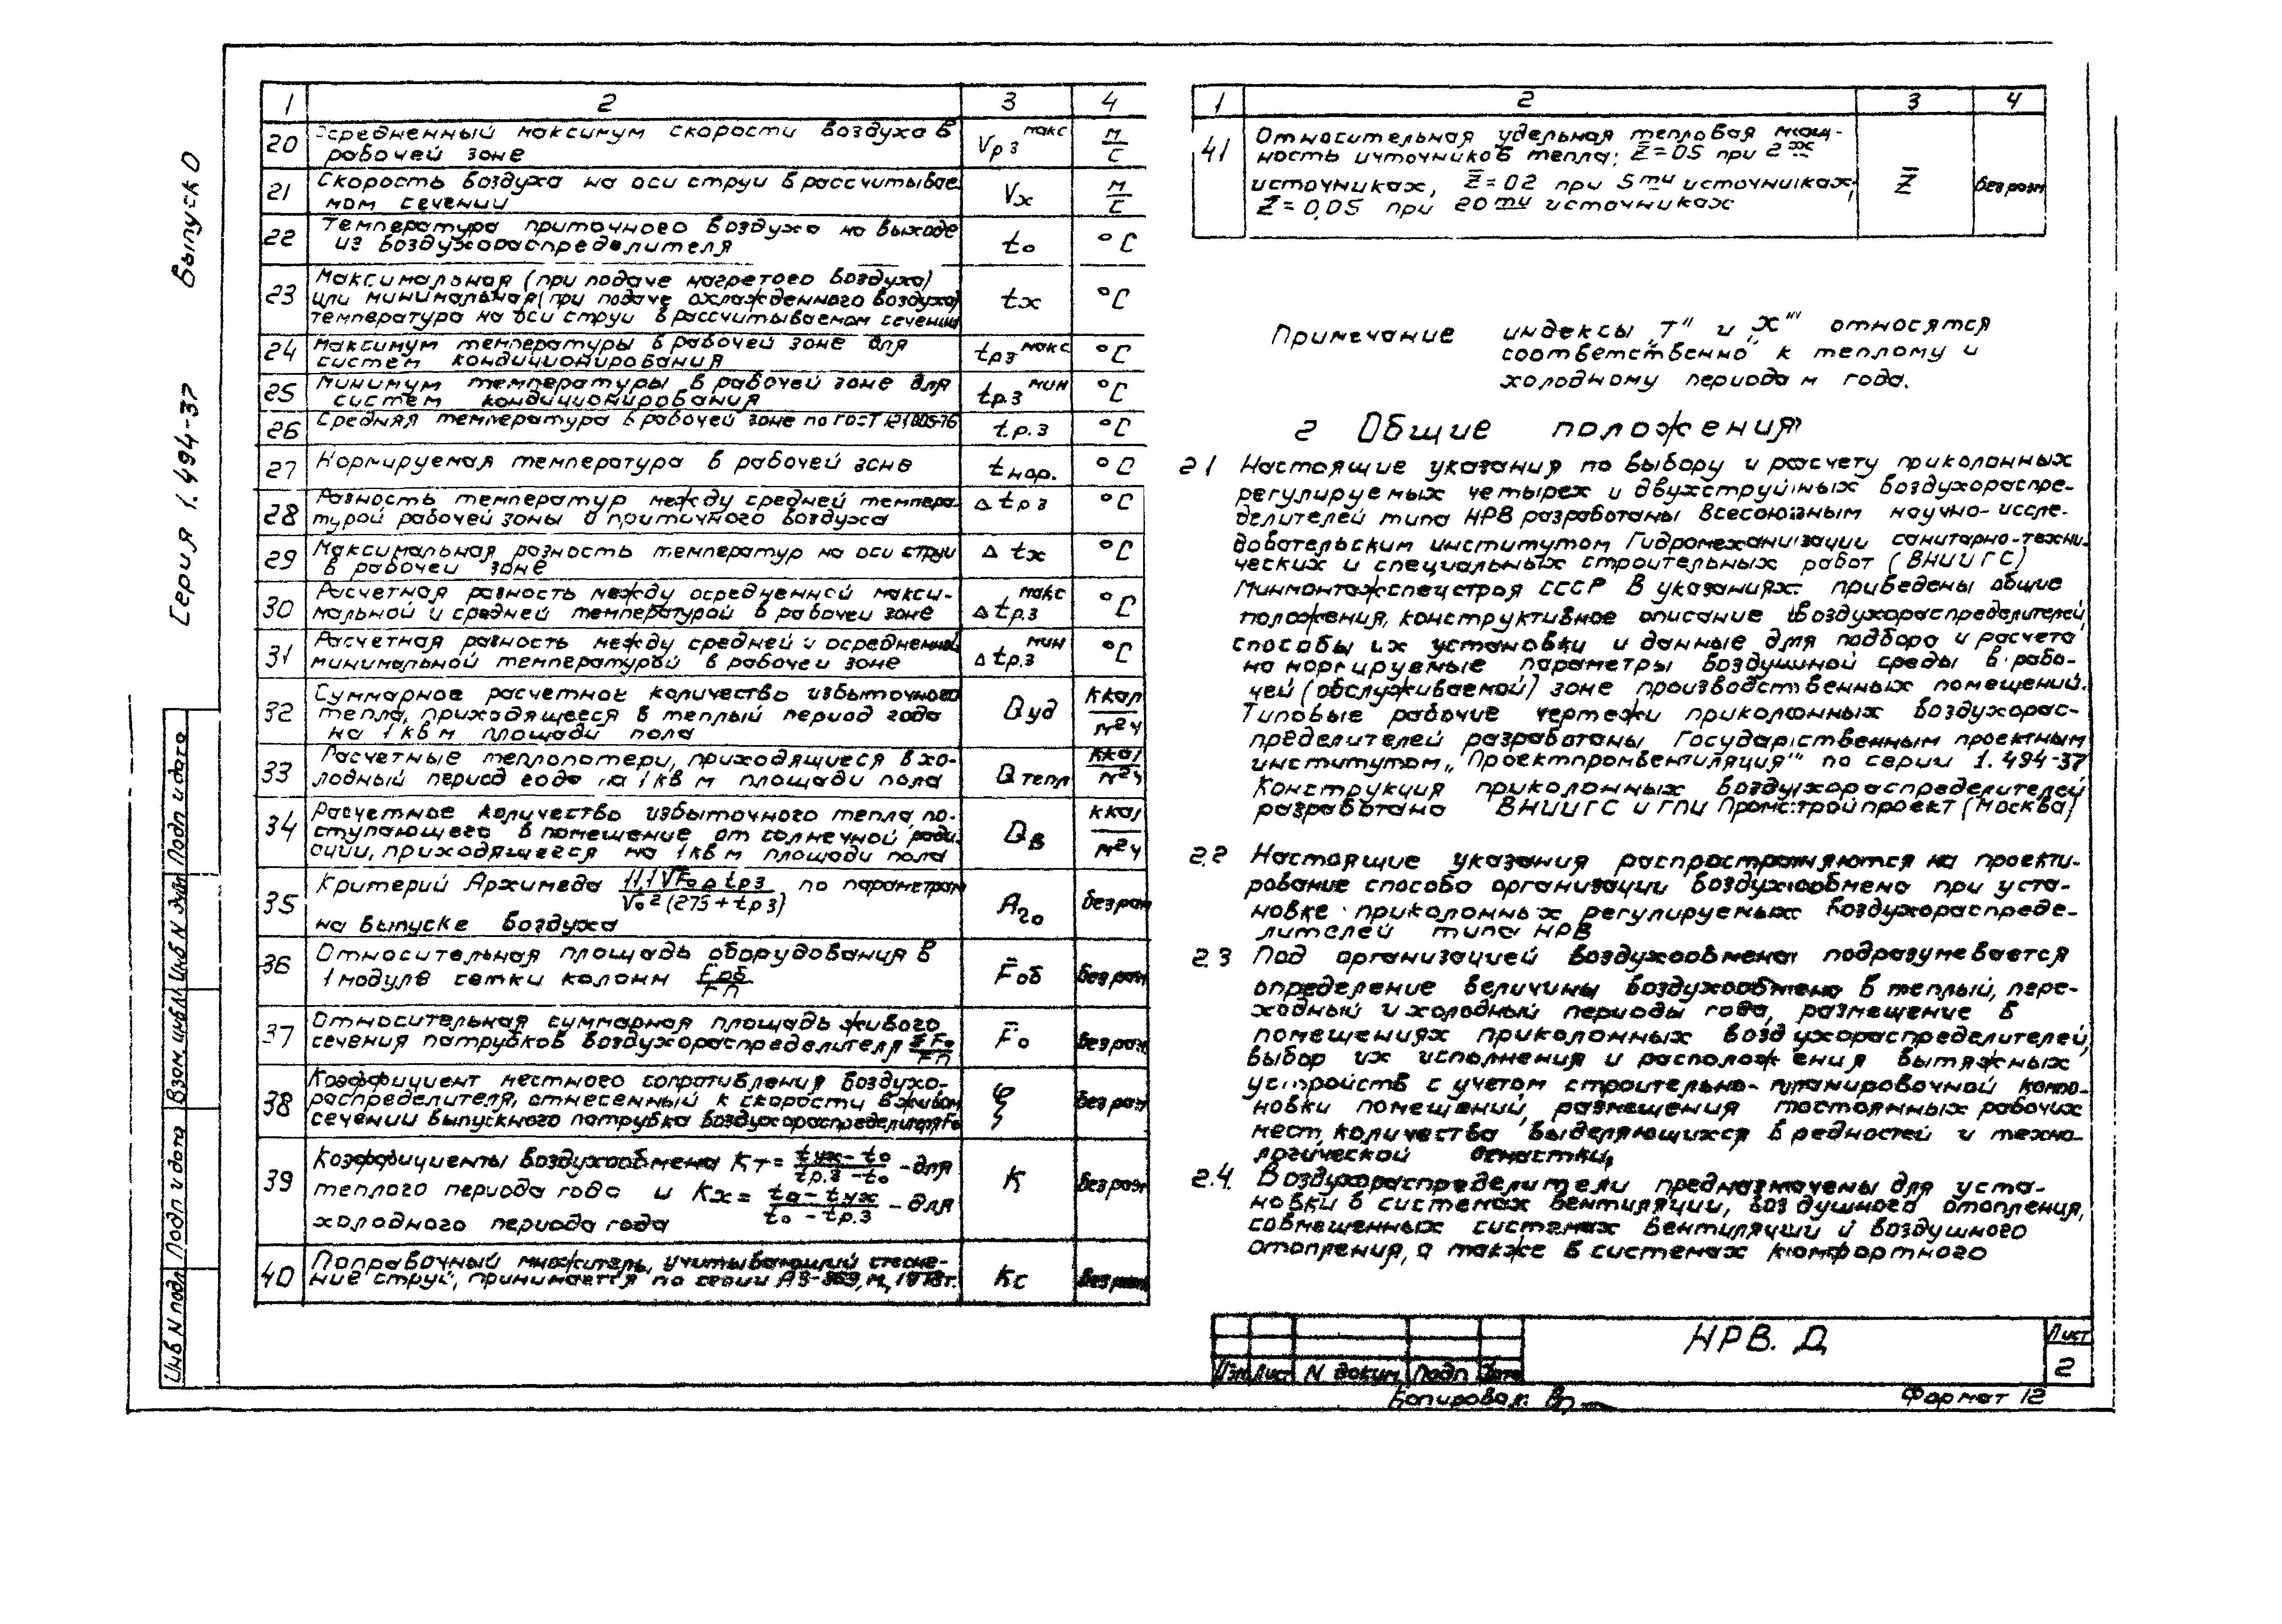 Серия 1.494-37 Выпуск 0
1 2 3 4
20 Осредненный максимум скорости воздуха в
рабочей зоне Vрз макс м/с
21 Скорость воздуха на оси струи в рассчитывае-
мом сечении Vх м/с
22 Температура приточного воздуха на выходе
из воздухораспределителя to °C
23 Максимальная (при подаче нагретого воздуха)
или минимальная (при подаче охлажденного воздуха)
температура на оси струи в рассчитываемом сечении tх °C
24 Максимум температуры в рабочей зоне для
систем кондиционирования tрз макс °C
25 Минимум температуры в рабочей зоне для
систем кондиционирования tр.з мин °C
26 Средняя температура в рабочей зоне по ГОСТ 12.1.005-76 tр.з °C
27 Нормируемая температура в рабочей зоне tнор. °C
28 Разность температур между средней темпера-
турой рабочей зоны и приточного воздуха Δ tрз °C
29 Максимальная разность температур на оси струи
в рабочей зоне Δ tх °C
30 Расчетная разность между осредненной макси-
мальной и средней температурой в рабочей зоне Δ tр.з макс °C
31 Расчетная разность между средней и осредненной
минимальной температурой в рабочей зоне Δ tр.з мин °C
32 Суммарное расчетное количество избыточного
тепла, приходящееся в теплый период года
на 1 кв м площади пола Qуд ккал/м²ч
33 Расчетные теплопотери, приходящиеся в хо-
лодный период года на 1 кв м площади пола Qтепл ккал/м²ч
34 Расчетное количество избыточного тепла по-
ступающего в помещение от солнечной ради-
ации, приходящегося на 1 кв м площади пола Qв ккал/м²ч
35 Критерий Архимеда 11,1 √Fo Δ tрз / Vo² (275 + tрз) по параметрам
на выпуске воздуха Аго без разм
36 Относительная площадь оборудования в
1 модуле сетки колонн Fоб/Fп F̄об без разм
37 Относительная суммарная площадь живого
сечения патрубков воздухораспределителя Σ Fo/Fп F̄o без разм
38 Коэффициент местного сопротивления воздухо-
распределителя, отнесенный к скорости в живом
сечении выпускного патрубка воздухораспределителя Fo ξ без разм
39 Коэффициенты воздухообмена Кт = tух - to / tр.з - to - для
теплого периода года и Кх = to - tух / to - tр.з - для
холодного периода года К без разм
40 Поправочный множитель, учитывающий стесне-
ние струй, принимается по серии АЗ-869, м, 1978г. Кс без разм
1 2 3 4
41 Относительная удельная тепловая мощ-
ность источников тепла; Z̄ = 05 при 2ух
источниках, Z̄ = 02 при 5ти источниках,
Z̄ = 0,05 при 20ти источниках Z̄ без разм
Примечание индексы „Т" и „Х" относятся
соответственно к теплому и
холодному периодам года.
2 Общие положения
2 1 Настоящие указания по выбору и расчету приколонных
регулируемых четырех и двухструйных воздухораспре-
делителей типа НРВ разработаны Всесоюзным научно-иссле-
довательским институтом Гидромеханизации санитарно-техни-
ческих и специальных строительных работ (ВНИИГС)
Минмонтажспецстроя СССР В указаниях приведены общие
положения, конструктивное описание воздухораспределителей,
способы их установки и данные для подбора и расчета
на нормируемые параметры воздушной среды в рабо-
чей (обслуживаемой) зоне производственных помещений.
Типовые рабочие чертежи приколонных воздухорас-
пределителей разработаны Государственным проектным
институтом „Проектпромвентиляция" по серии 1.494-37
Конструкция приколонных воздухораспределителей
разработана ВНИИГС и ГПИ Промстройпроект (Москва)
2.2 Настоящие указания распространяются на проекти-
рование способа организации воздухообмена при уста-
новке приколонных регулируемых воздухораспреде-
лителей типа НРВ
2.3 Под организацией воздухообмена подразумевается
определение величины воздухообмена в теплый, пере-
ходный и холодный периоды года, размещение в
помещениях приколонных воздухораспределителей,
выбор их исполнения и расположения вытяжных
устройств с учетом строительно-планировочной компо-
новки помещений, размещения постоянных рабочих
мест, количества выделяющихся вредностей и техно-
логической оснастки.
2.4. Воздухораспределители предназначены для уста-
новки в системах вентиляции, воздушного отопления,
совмещенных системах вентиляции и воздушного
отопления, а также в системах комфортного
Инв N подл Подп и дата Взам. инв N Инв N дубл Подп и дата
Изм Лист N докум Подп Дата
НРВ. Д
Лист
2
Копировал:
Формат 12